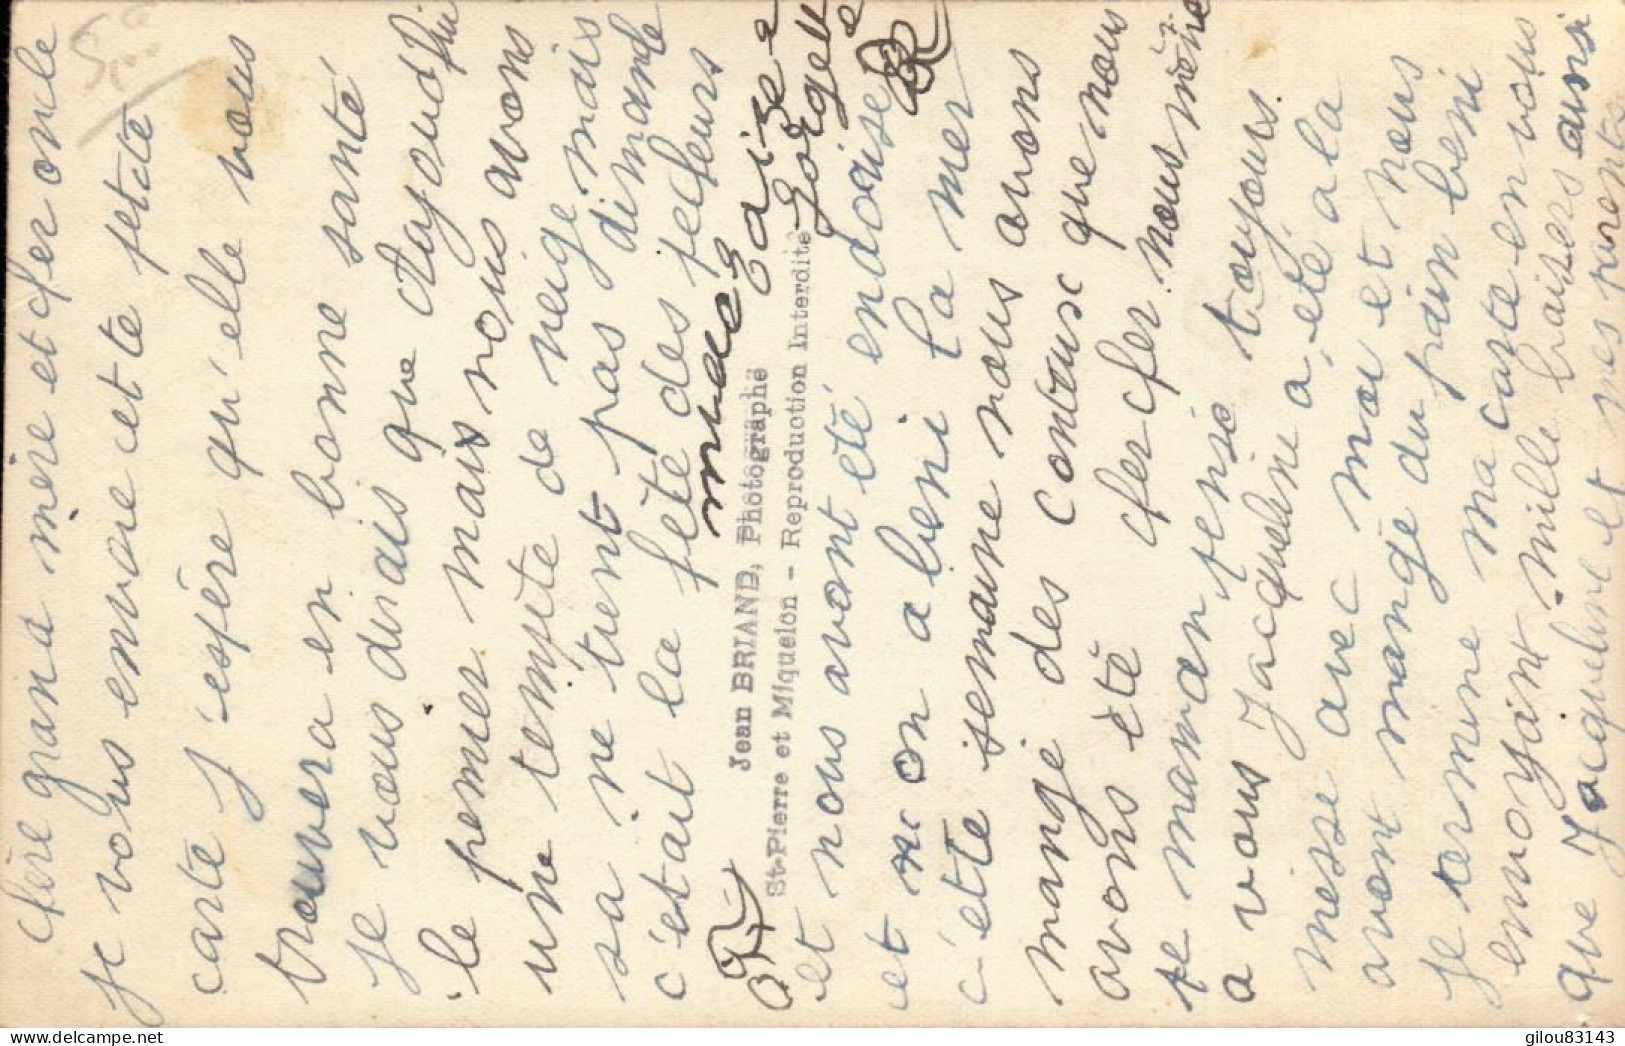 Chère grand mère et cher oncle
je vous envoie cette petite
carte j'espère qu'elle vous
trouvera en bonne santé
Je vous dirais que Aujoud'hui
le pemier mais nous avons
une tempête de neige mais
sa ne tient pas dimanche
c'était la fête des pecheurs
Jean BRIAND, Photographe
St-Pierre et Miquelon - Reproduction Interdite
et nous avont été endouise
et on a beni la mer
c'ette semaine nous avons
mangé des conteaux que nous
avons été cher cher nous même
te maman pense toujours
a vous Jacqueline a été a la
messe avec moi et nous
avont mangé du pain beni
Je termine ma carte en vous
envoyant mille baisers ainsi
que Jacqueline et mes parents
gilou83143